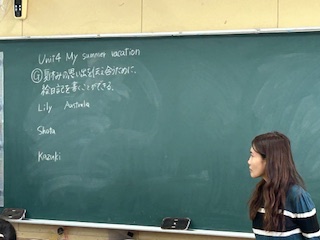 Unit4 My summer vacation
夏休みの思い出を伝え合うために、
絵日記を書くことができる。
Lily Australia
Shota
Kazuki